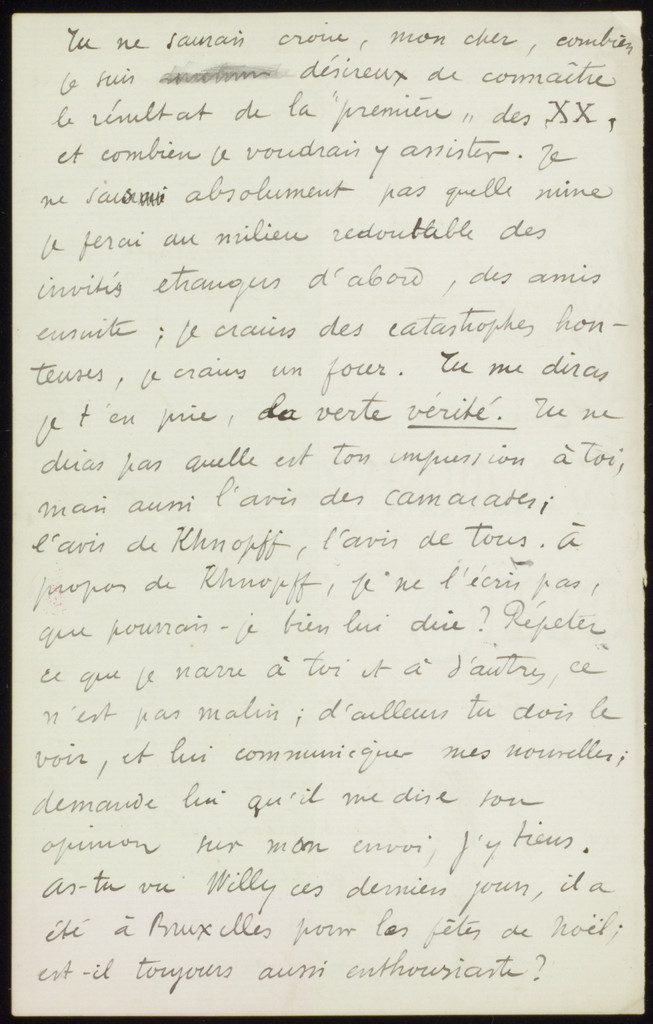 Tu ne saurais croire, mon cher, combien
je suis désireux de connaître
le résultat de la "première" des XX,
et combien je voudrais y assister. Je
ne sais absolument pas quelle mine
je ferai au milieu redoutable des
invités etrangers d'abord, des amis
ensuite ; je crains des catastrophes hon-
teuses, je crains un four. Tu me diras
je t'en prie, la verte vérité. Tu ne
diras pas quelle est ton impression à toi,
mais aussi l'avis des camarades ;
l'avis de Khnopff, l'avis de tous. à
propos de Khnopff, je ne l'écris pas,
que pourrais-je bien lui dire ? Répéter
ce que je narre à toi et à d'autres, ce
n'est pas malin ; d'ailleurs tu dois le
voir, et lui communiquer mes nouvelles ;
demande lui qu'il me dise son
opinion sur mon envoi, j'y tiens.
as-tu vu Willy ces derniers jours, il a
été à Bruxelles pour les fêtes de Noël ;
est-il toujours aussi enthousiaste ?